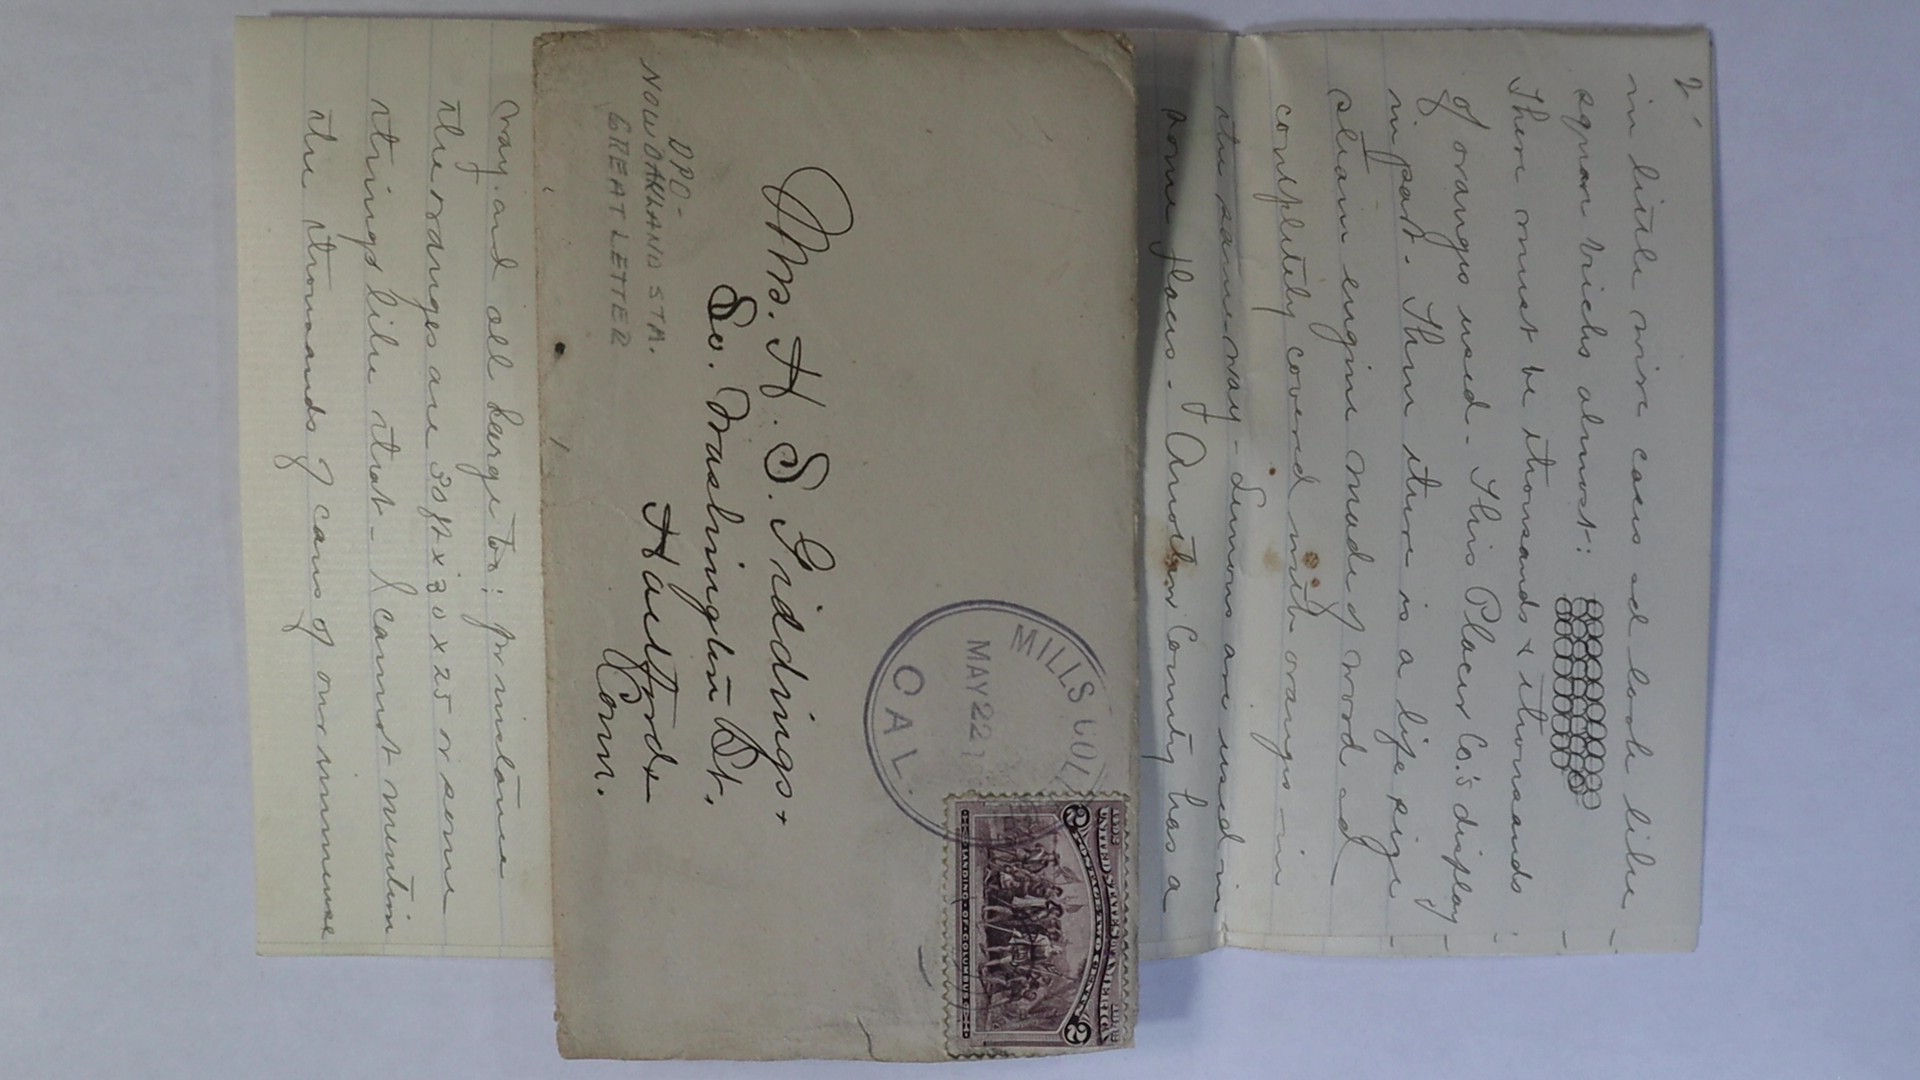 2'
in little wire cases and look like
square bricks almost:
There must be thousands & thousands
of oranges used - This Placer Co.'s display -
in part. Then there is a life size
steam engine made of wood and
completely covered with oranges - in
the same way - Lemons are used in
some places. Another County has a
DPO-
NOW OAKLAND STA.
GREAT LETTER
MILLS COL
MAY 22
CAL.
1492
UNITED STATES OF AMERICA
1892
POSTAGE TWO CENTS
2
2
LANDING OF COLUMBUS
Mrs. H. S. Giddings.
So. Washington St.
Hartford
Conn.
way and all large too: for instance
the oranges are 38 ft x 30 x 25 or some
things like that - I cannot mention
the thousands of cans of our immense